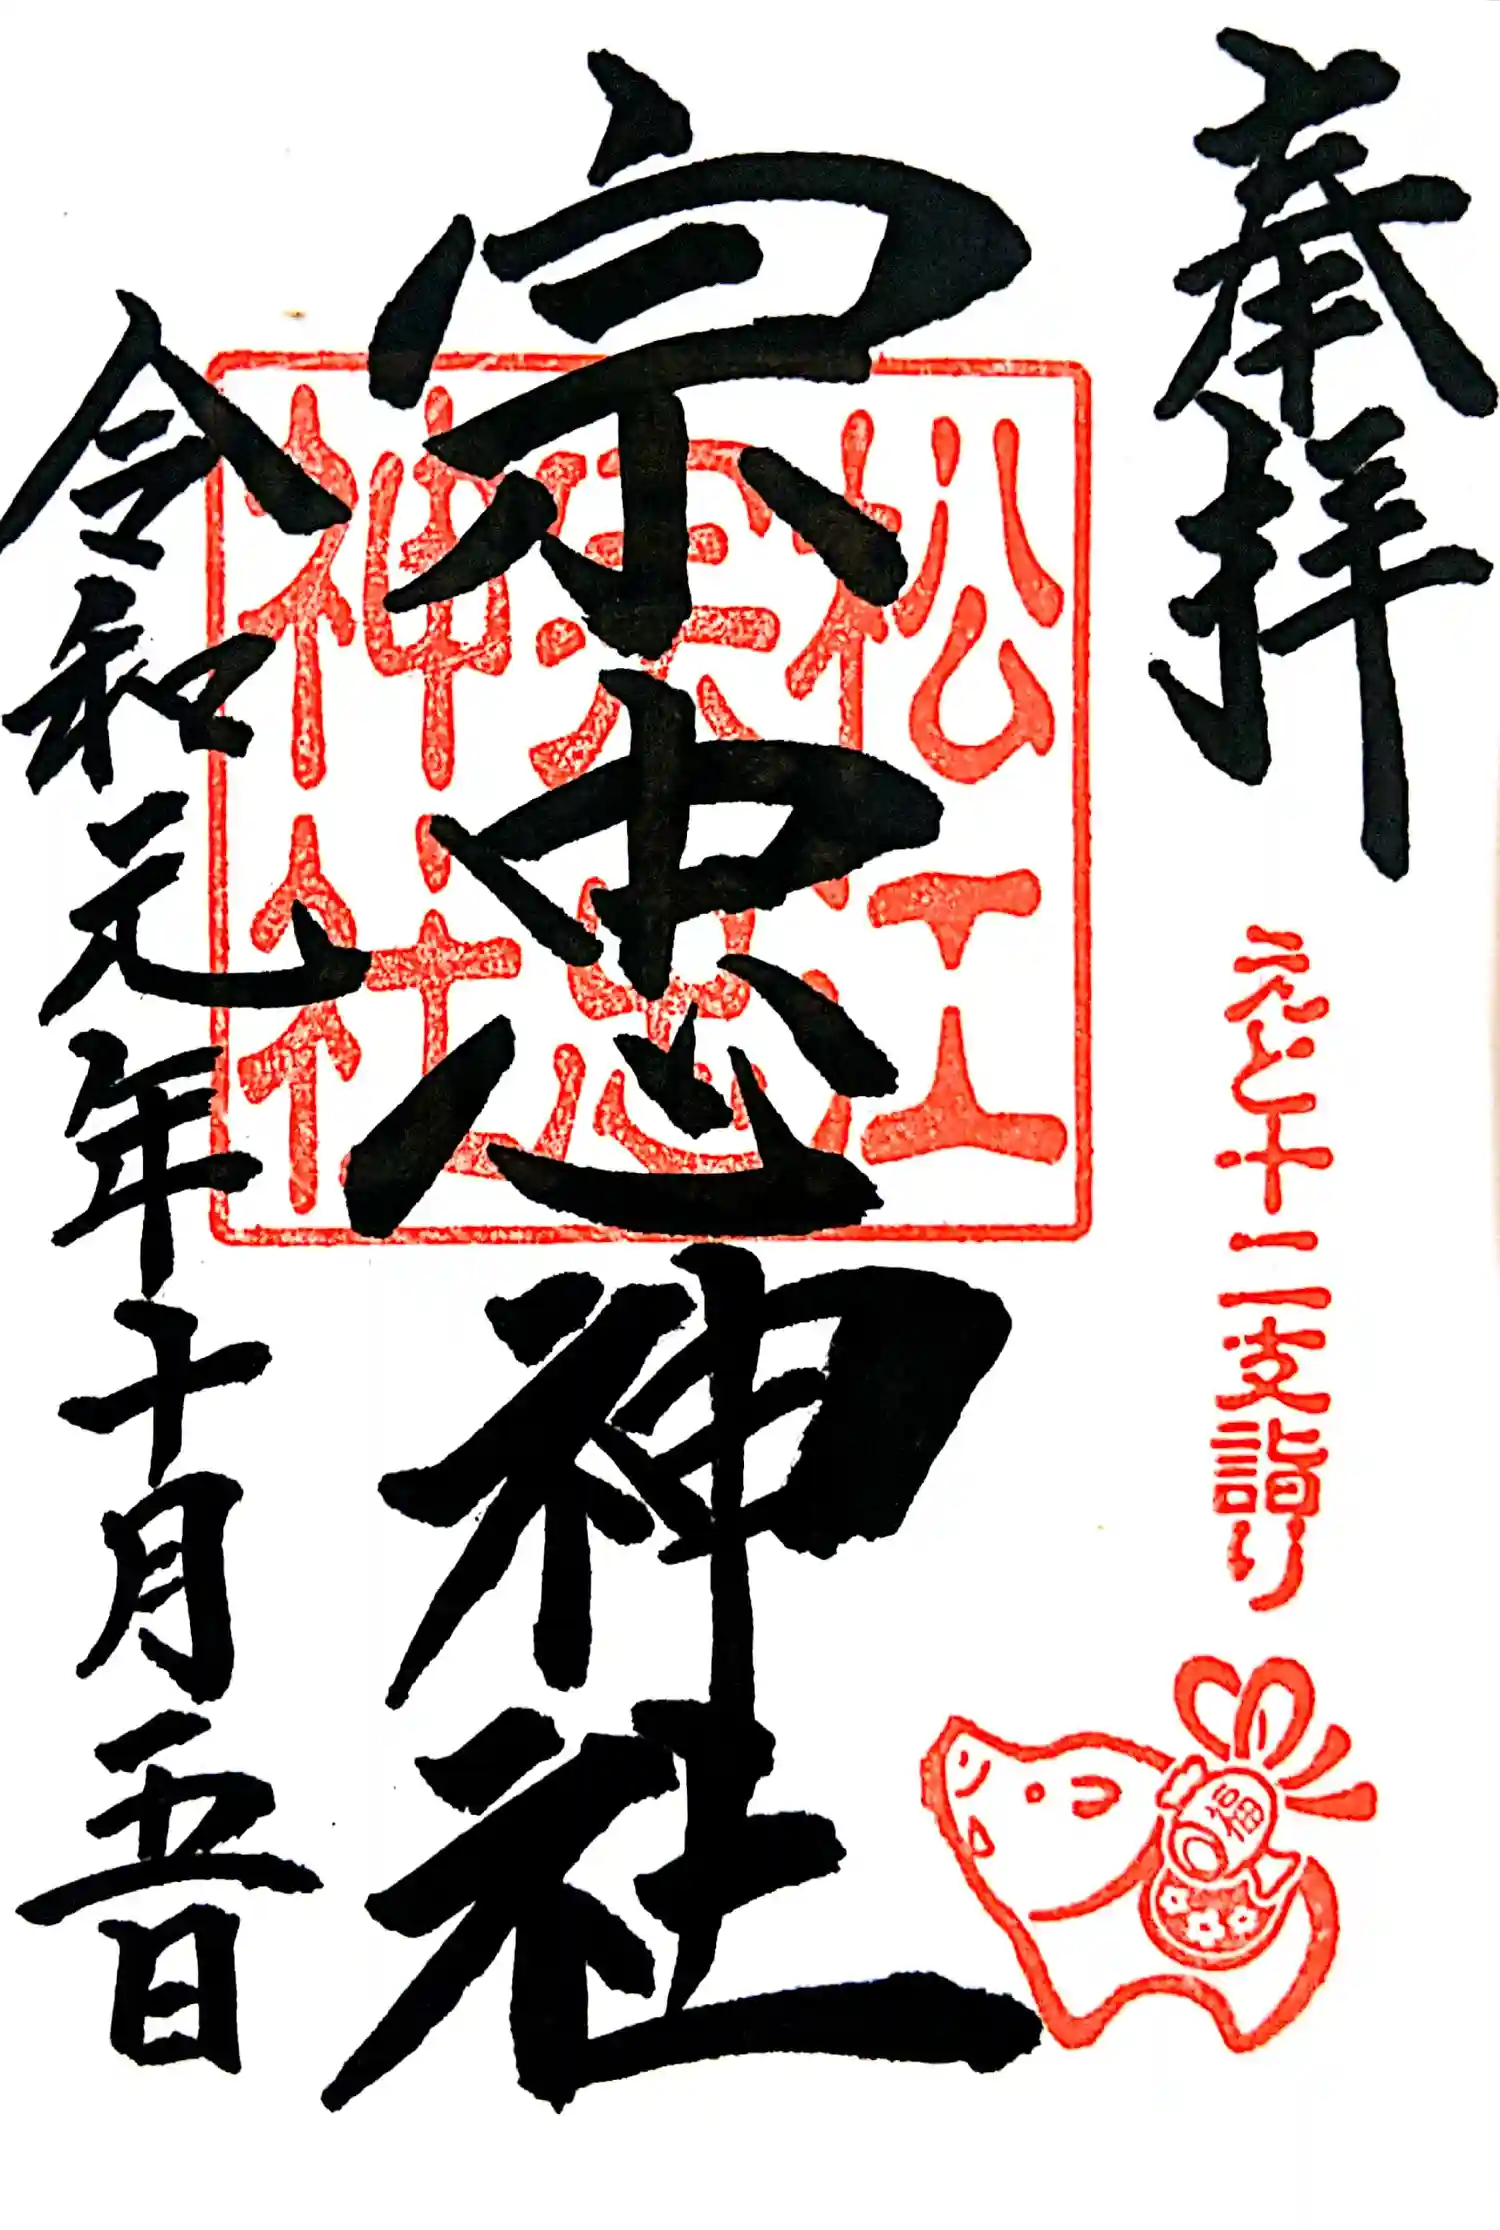 奉拝
えと十二支詣り
福
松江
宗忠
神社
宗忠神社
令和元年十月五日